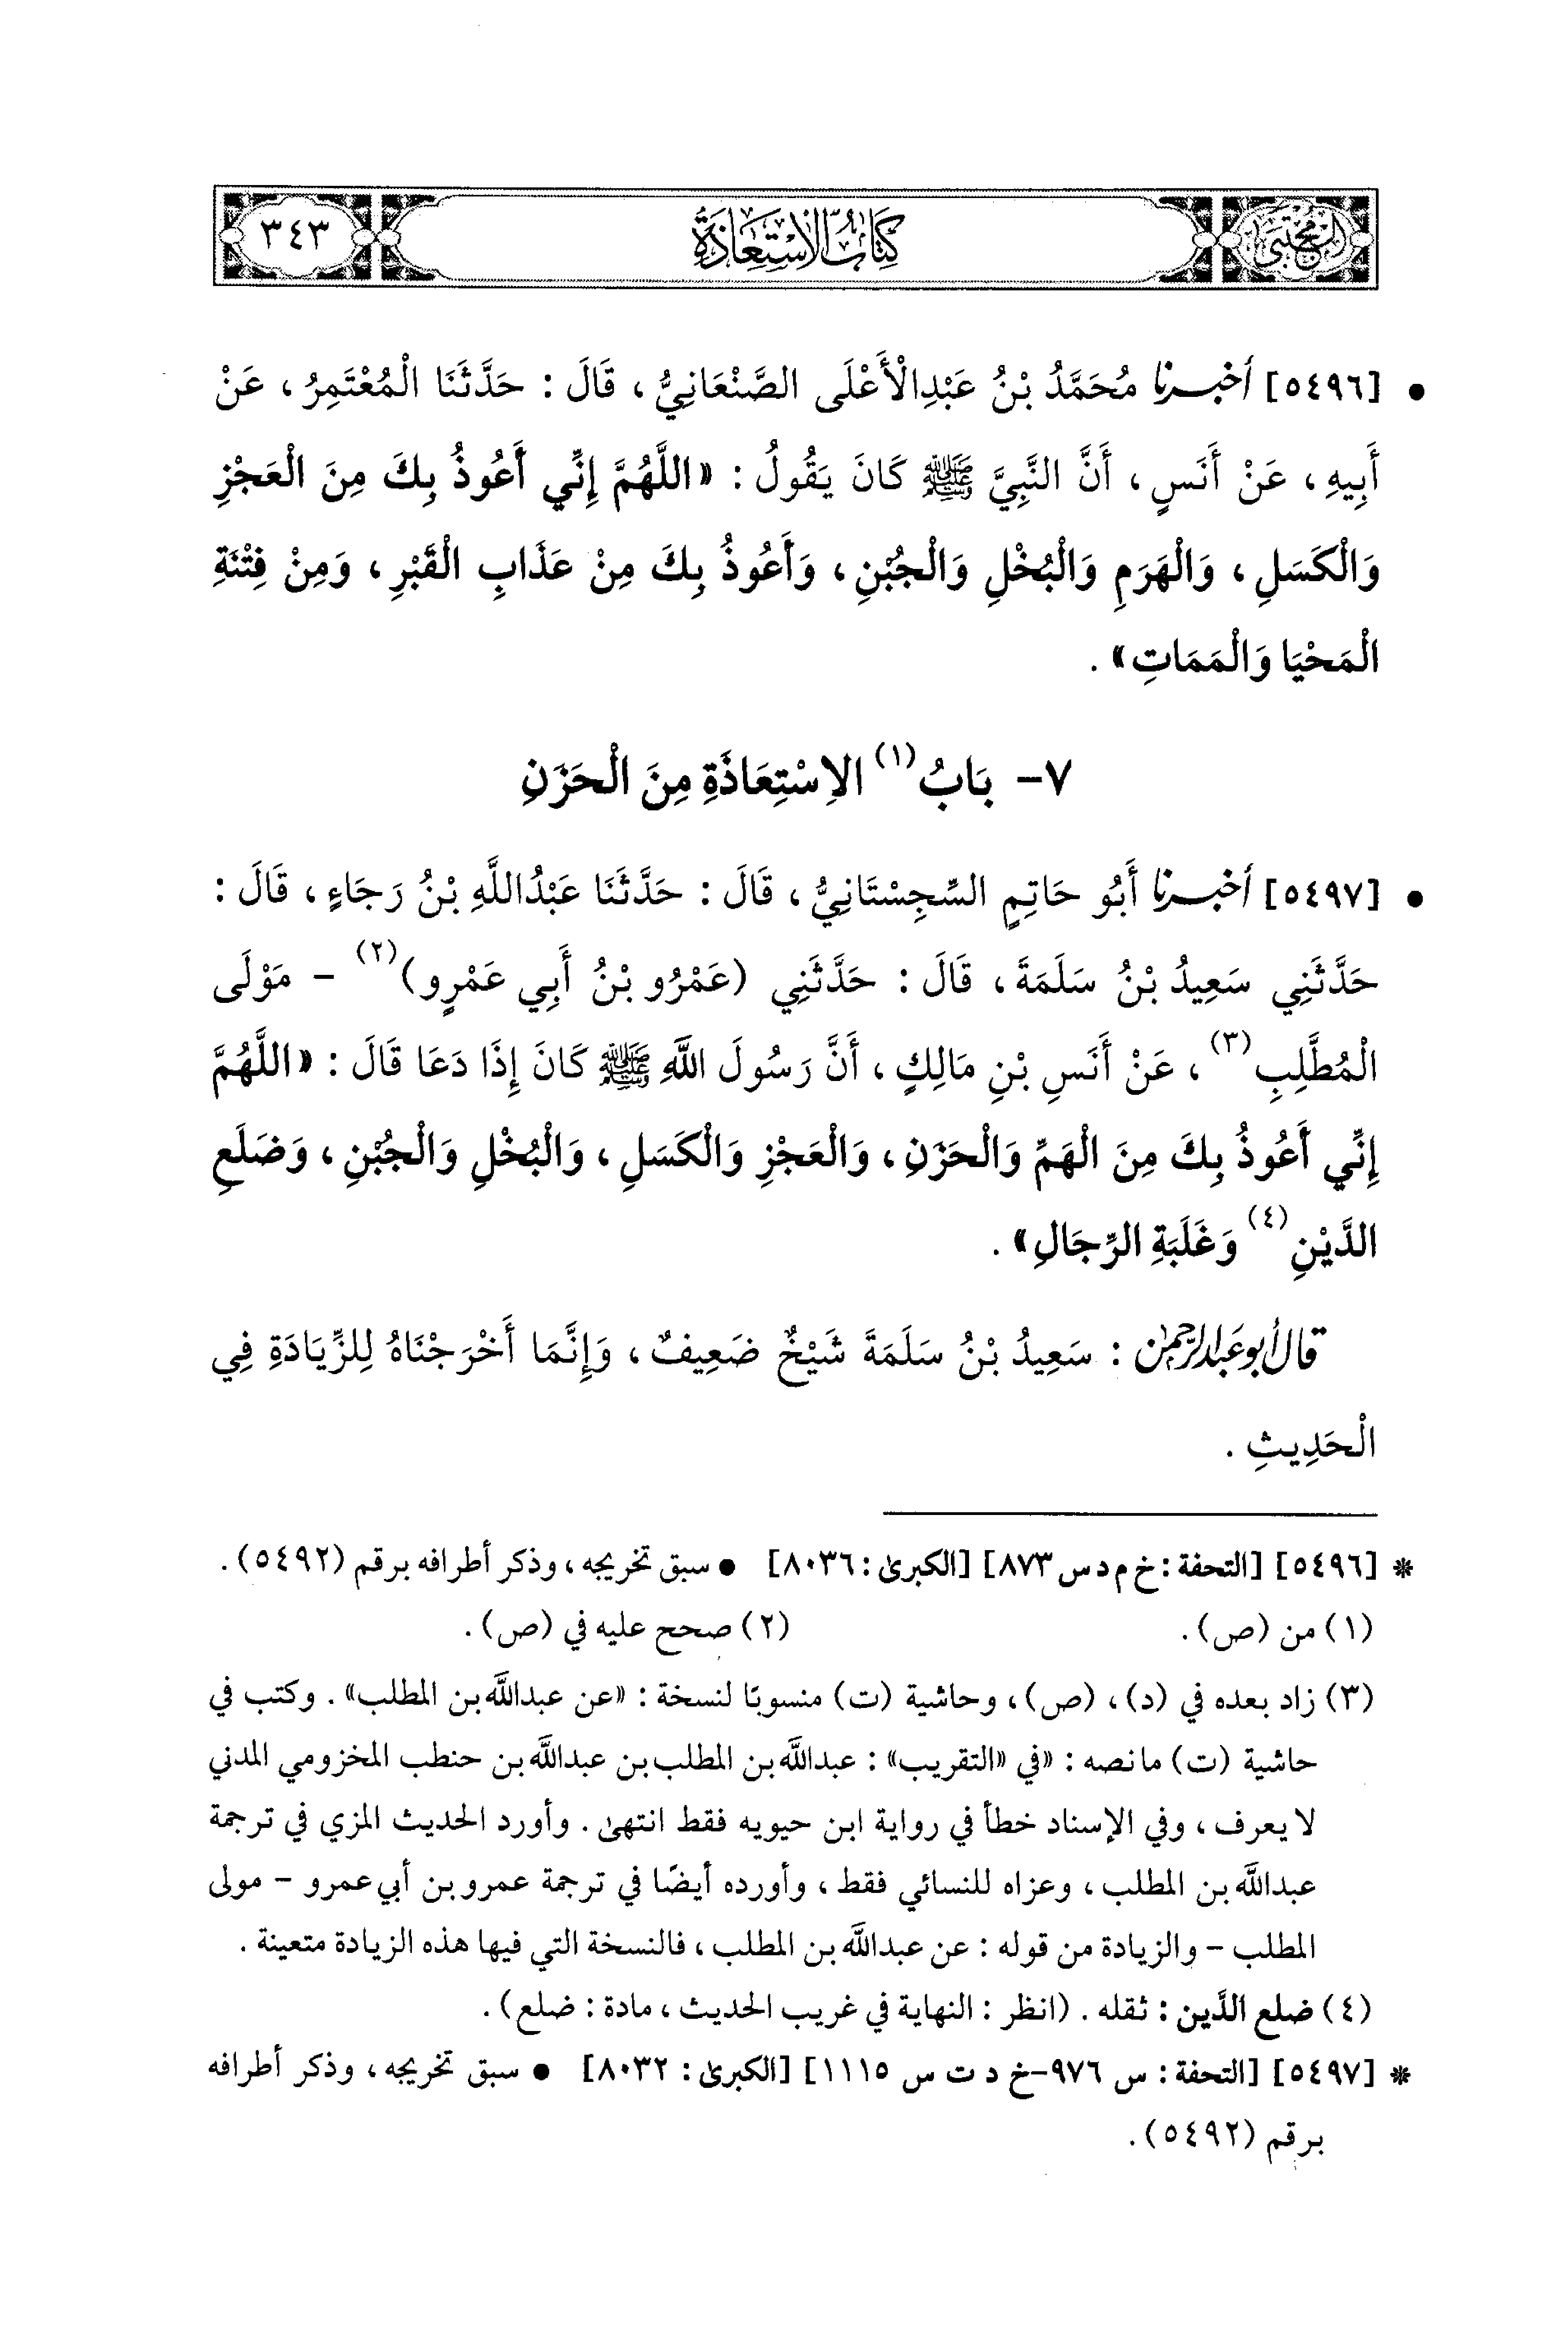 المجتبى كِتَابُ الاسْتِعَاذَة ٣٤٣
• [٥٤٩٦] أخبرنا مُحَمَّدُ بْنُ عَبْدِالْأَعْلَى الصَّنْعَانِيُّ ، قَالَ : حَدَّثَنَا الْمُعْتَمِرُ ، عَنْ
أَبِيهِ ، عَنْ أَنَسٍ ، أَنَّ النَّبِيَّ ﷺ كَانَ يَقُولُ : «اللَّهُمَّ إِنِّي أَعُوذُ بِكَ مِنَ الْعَجْزِ
وَالْكَسَلِ ، وَالْهَرَمِ وَالْبُخْلِ وَالْجُبْنِ ، وَأَعُوذُ بِكَ مِنْ عَذَابِ الْقَبْرِ ، وَمِنْ فِتْنَةِ
الْمَحْيَا وَالْمَمَاتِ» .
٧- بَابُ(١) الاِسْتِعَاذَةِ مِنَ الْحَزَنِ
• [٥٤٩٧] أخبرنا أَبُو حَاتِمٍ السِّجِسْتَانِيُّ ، قَالَ : حَدَّثَنَا عَبْدُاللَّهِ بْنُ رَجَاءٍ ، قَالَ :
حَدَّثَنِي سَعِيدُ بْنُ سَلَمَةَ ، قَالَ : حَدَّثَنِي (عَمْرُو بْنُ أَبِي عَمْرٍو)(٢) - مَوْلَى
الْمُطَّلِبِ(٣) ، عَنْ أَنَسِ بْنِ مَالِكٍ ، أَنَّ رَسُولَ اللَّهِ ﷺ كَانَ إِذَا دَعَا قَالَ : «اللَّهُمَّ
إِنِّي أَعُوذُ بِكَ مِنَ الْهَمِّ وَالْحَزَنِ ، وَالْعَجْزِ وَالْكَسَلِ ، وَالْبُخْلِ وَالْجُبْنِ ، وَضَلَعِ
الدَّيْنِ(٤) وَغَلَبَةِ الرِّجَالِ» .
قال أبو عبد الرحمن : سَعِيدُ بْنُ سَلَمَةَ شَيْخٌ ضَعِيفٌ ، وَإِنَّمَا أَخْرَجْنَاهُ لِلزِّيَادَةِ فِي
الْحَدِيثِ .
* [٥٤٩٦] [التحفة : خ م د س ٨٧٣] [الكبرى : ٨٠٣٦] • سبق تخريجه ، وذكر أطرافه برقم (٥٤٩٢) .
(١) من (ص) . (٢) صحح عليه في (ص) .
(٣) زاد بعده في (د) ، (ص) ، وحاشية (ت) منسوبًا لنسخة : «عن عبداللَّه بن المطلب» . وكتب في
حاشية (ت) ما نصه : «في «التقريب» : عبداللَّه بن المطلب بن عبداللَّه بن حنطب المخزومي المدني
لا يعرف ، وفي الإسناد خطأ في رواية ابن حيويه فقط انتهى . وأورد الحديث المزي في ترجمة
عبداللَّه بن المطلب ، وعزاه للنسائي فقط ، وأورده أيضًا في ترجمة عمرو بن أبي عمرو - مولى
المطلب - والزيادة من قوله : عن عبداللَّه بن المطلب ، فالنسخة التي فيها هذه الزيادة متعينة .
(٤) ضلع الدَّين : ثقله . (انظر : النهاية في غريب الحديث ، مادة : ضلع) .
* [٥٤٩٧] [التحفة : س ٩٧٦-خ د ت س ١١١٥] [الكبرى : ٨٠٣٢] • سبق تخريجه ، وذكر أطرافه
برقم (٥٤٩٢) .